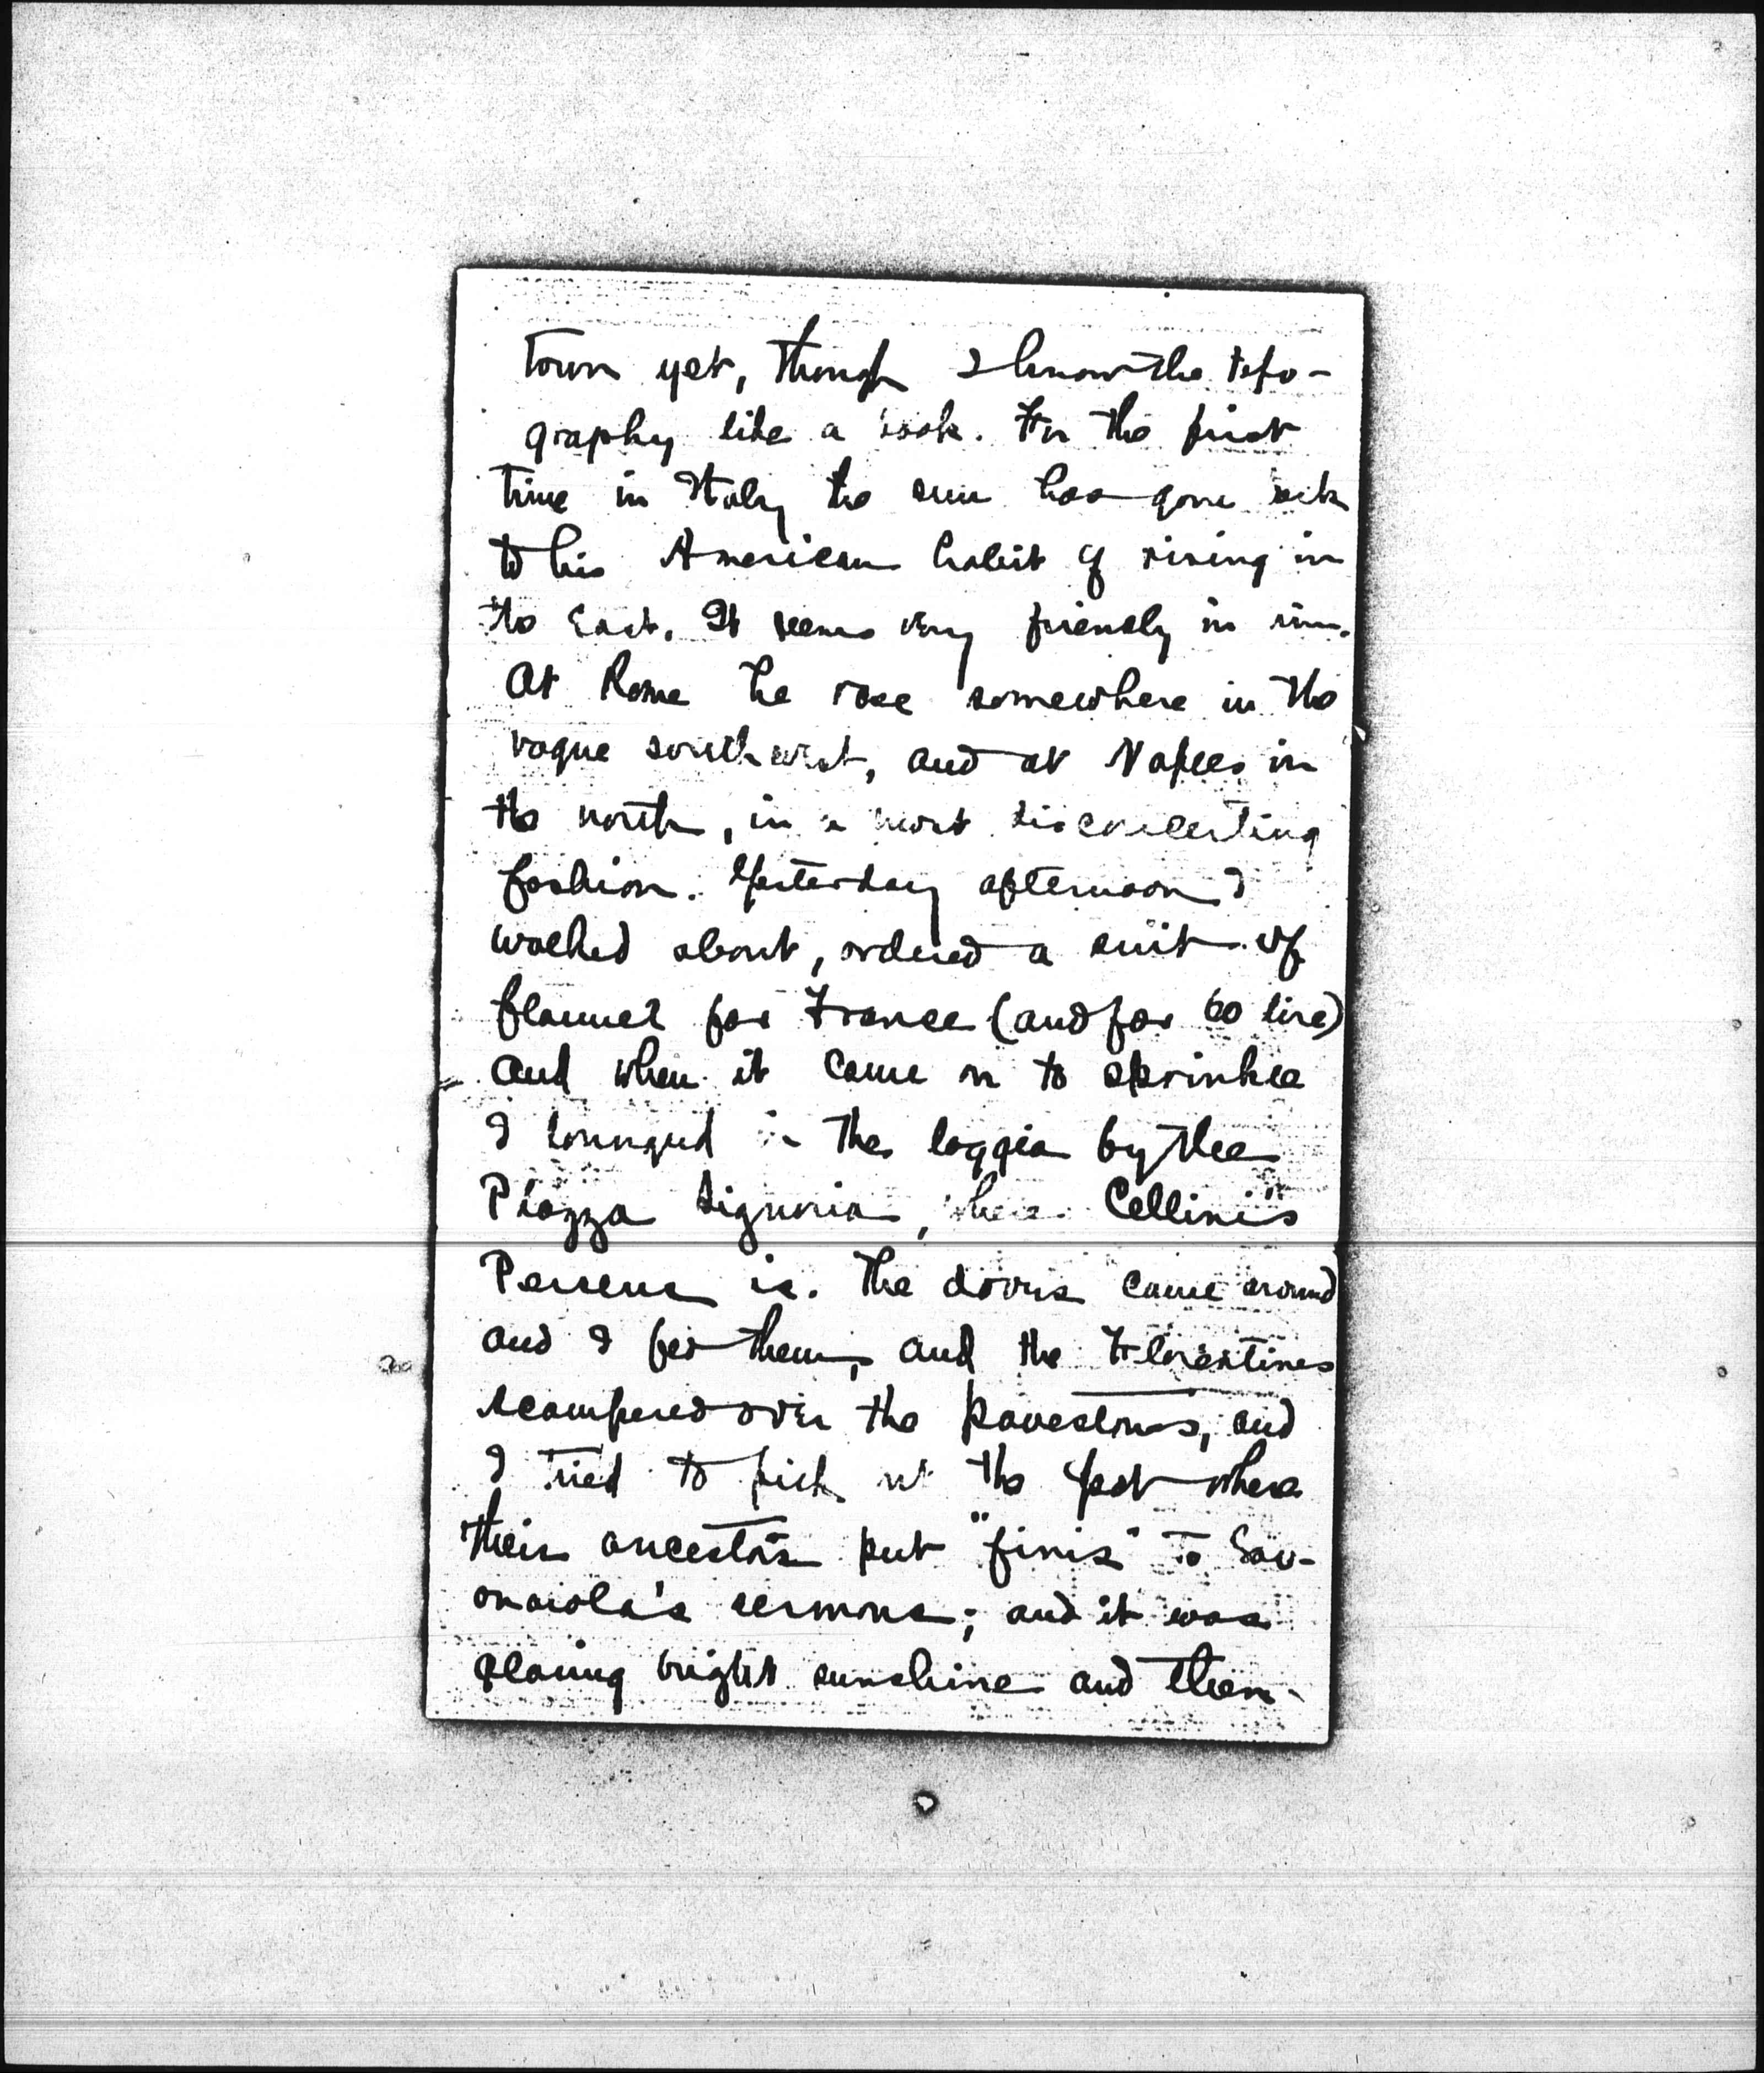 town yet, though I know the topo-
graphy like a book. For the first
time in Italy the sun has gone back
to his American habit of rising in
the East. It seems very friendly in him.
At Rome he rose somewhere in the
vague southwest, and at Naples in
the north, in a most disconcerting
fashion. Yesterday afternoon I
walked about, ordered a suit of
flannel for France (and for 60 lire)
and when it came on to sprinkle
I lounged in the loggia by the
Piazza Signoria, where Cellini's
Perseus is. The doves came around
and I fed them, and the Florentines
scampered over the pavestones, and
I tried to pick out the spot where
their ancestors put "finis" to Sav-
onarola's sermons; and it was
glaring bright sunshine and then